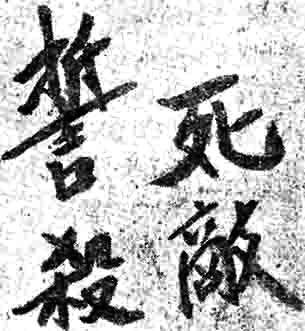 誓殺
死敵